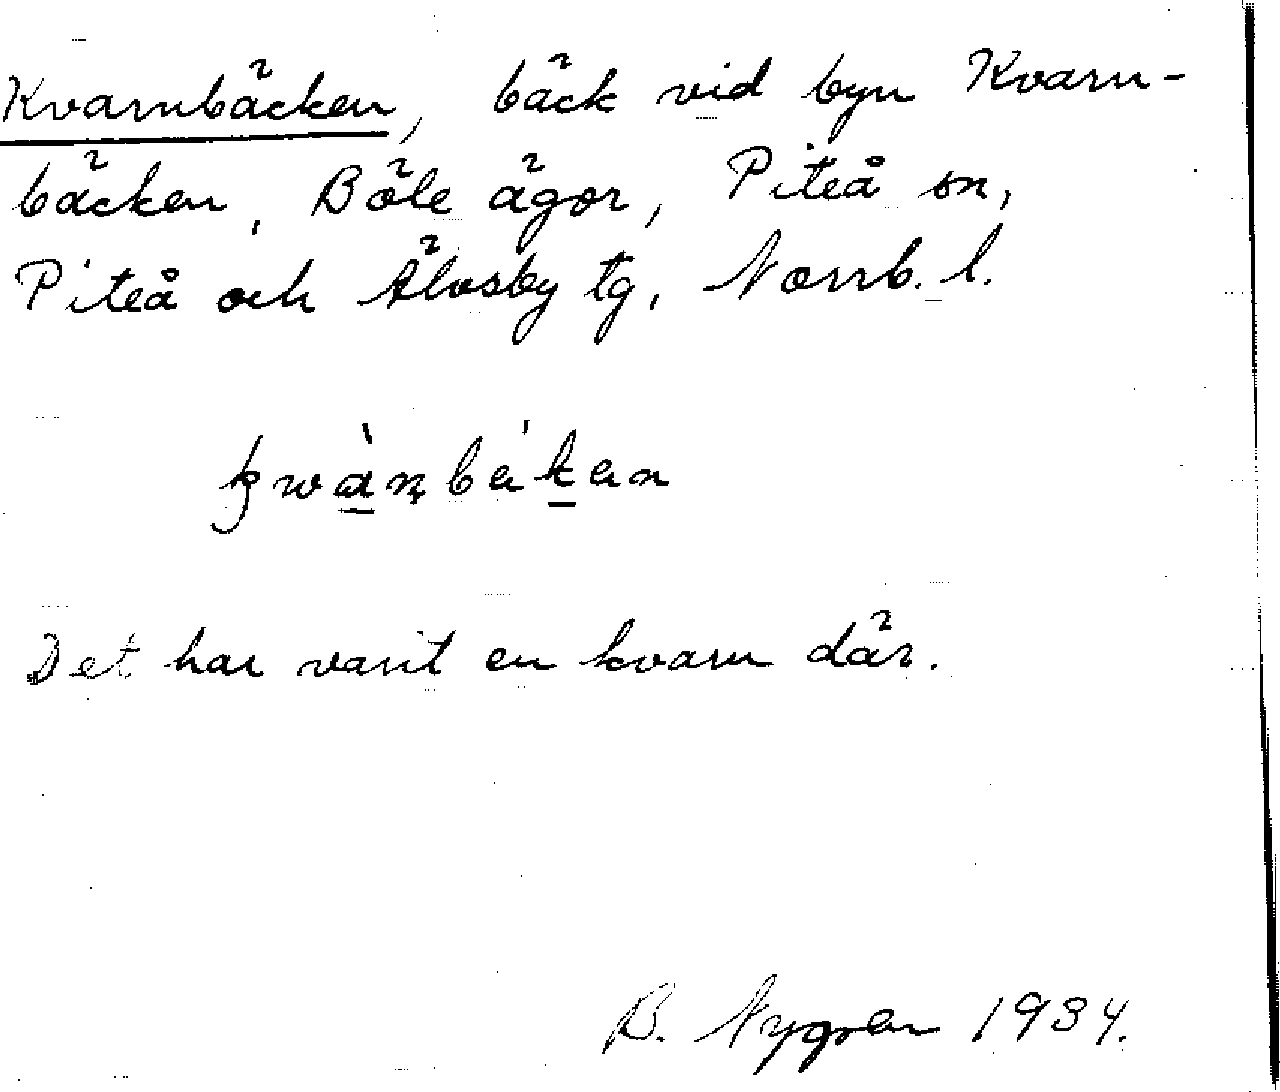 Kvarnbäcken, bäck vid byn Kvarn-
bäcken, Böle ägor, Piteå sn,
Piteå och Älvsby tg, Norrb. l.
kwàn̥bákan
Det har varit en kvarn där.
B. Nygren 1934.